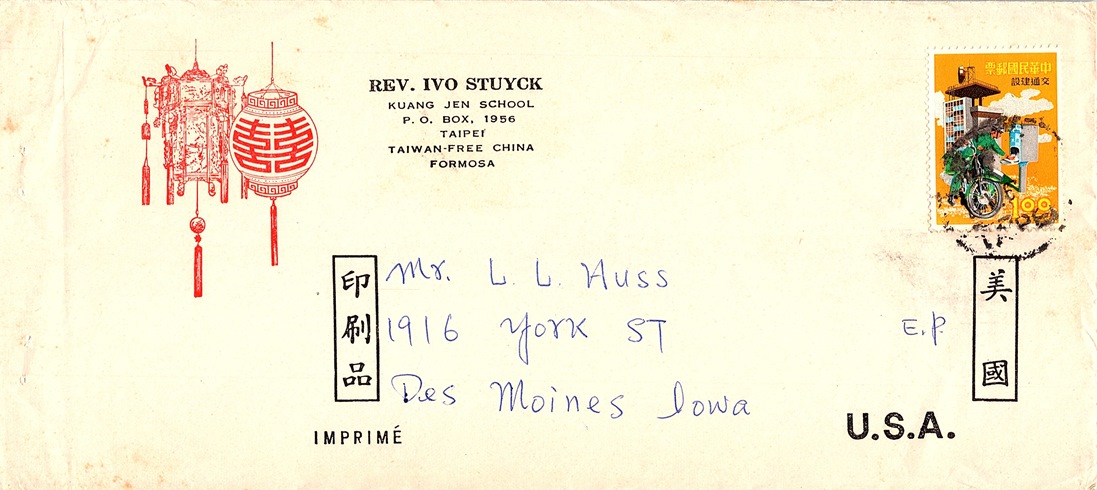 REV. IVO STUYCK
KUANG JEN SCHOOL
P. O. BOX, 1956
TAIPEI
TAIWAN-FREE CHINA
FORMOSA
票郵國民華中
設建通交
1.00
印刷品
Mr. L. L. Huss
1916 York ST
Des Moines Iowa
E.P.
美國
IMPRIMÉ
U.S.A.